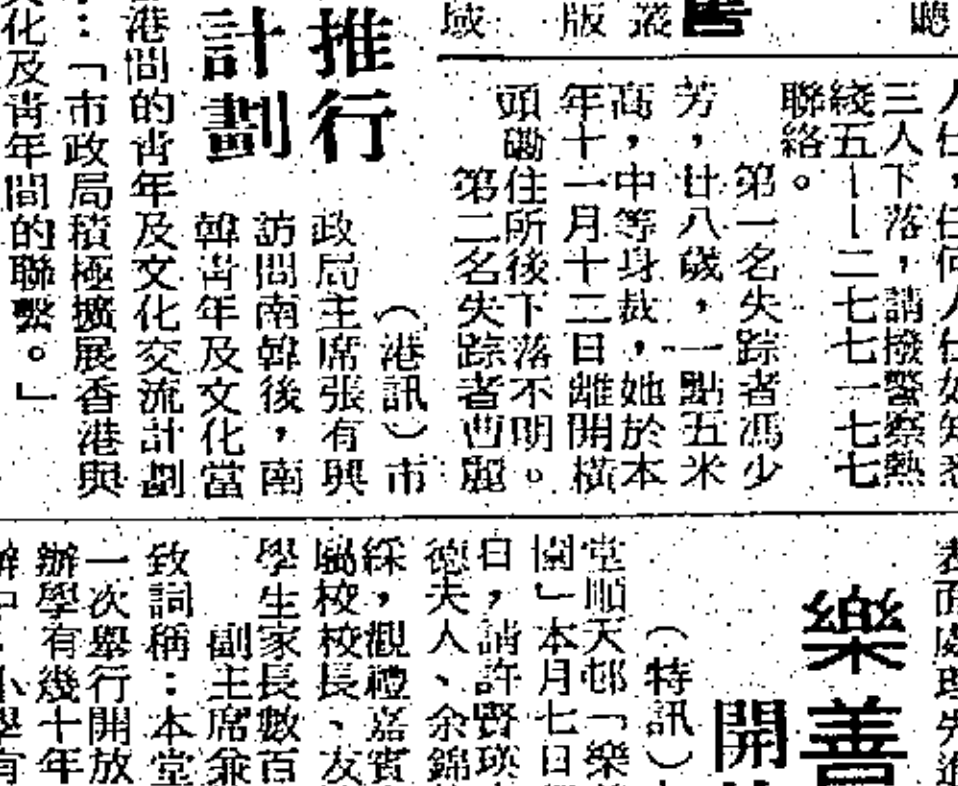 聽
叢
版
域
三人下落，請撥警察熱
綫五——二七七一七七
聯絡。
第一名失踪者馮少
芳，廿八歲，一點五米
高，中等身裁，她於本
年十一月十二日離開橫
頭磡住所後下落不明。
第二名失踪者曹麗
推行
計劃
（港訊）市
政局主席張有興
訪問南韓後，南
韓青年及文化當
港間的青年及文化交流計劃
：「市政局積極擴展香港與
化及青年間的聯繫。」
樂善
開
（特訊）
堂順天邨「樂
園」本月七日
日，請許賢瑛
德夫人、余錦
綵，觀禮嘉賓
屬校校長、友
學生家長數百
副主席兼
致詞稱：本堂
一次舉行開放
辦學有幾十年